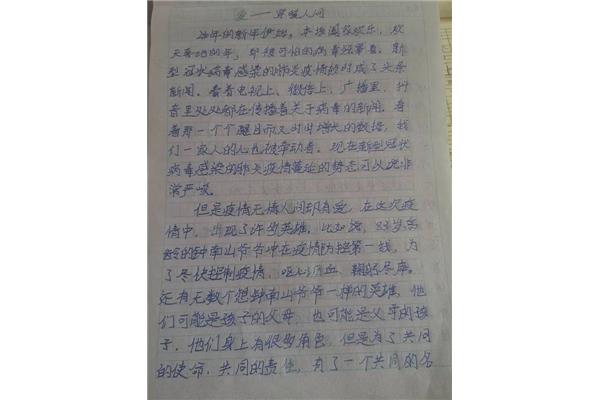 爱——温暖人间
今年的新年伊始。本该阖家欢乐，欢
天喜地的年，却被可怕的病毒笼罩着。新
型冠状病毒感染的肺炎疫情顿时成了头条
新闻。看着电视上、微信上、广播里、抖
音里处处都在传播着关于病毒的新闻。看
着那一个个醒目而又时时增长的数据，我
们一家人的心也被牵动着。现在新型冠状
病毒感染的肺炎疫情蔓延的势态可以说非
常严峻。
但是疫情无情人间却有爱，在这次疫
情中，出现了许多英雄。比如说，83岁高
龄的钟南山爷爷冲在疫情防控第一线，为
了尽快控制疫情，呕心沥血、鞠躬尽瘁。
还有无数个想钟南山爷爷一样的英雄，他
们可能是孩子的父母，也可能是父母的孩
子，他们身上有很多角色，但是为了共同
的使命，共同的责任，有了一个共同的名